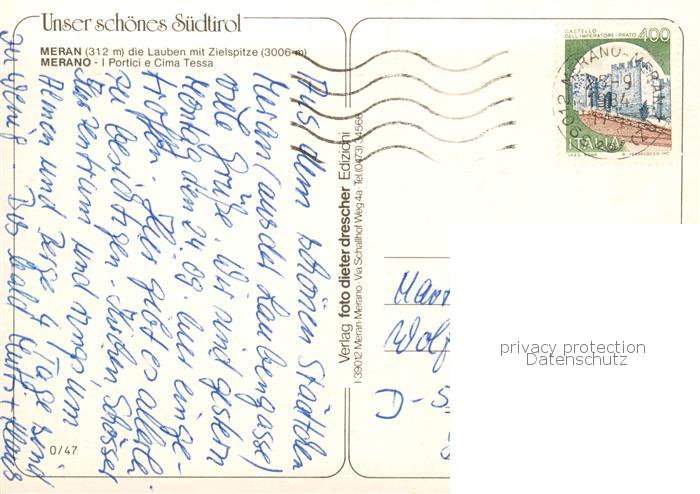 Unser schönes Südtirol
MERAN (312 m) die Lauben mit Zielspitze (3006 m)
MERANO - I Portici e Cima Tessa
Aus dem schönen Städtchen
Meran (aus der Laubengasse)
viele Grüße. Wir sind gestern
Montag den 24.09. hier einge-
troffen. Hier gibt es allerlei
zu besichtigen. Kirchen, Schlösser
Stadtzentrum und ringsum
Almen und Berge 4 Tage sind
zu wenig. Bis bald
0/47
Verlag foto dieter drescher Edizioni
I-39012 Meran-Merano · Via Schallhof Weg 4a · Tel. (0473) 34566
CASTELLO
DELL'IMPERATORE - PRATO
400
ITALIA
MERANO-MERAN
1984
Wolf
D-S
privacy protection
Datenschutz